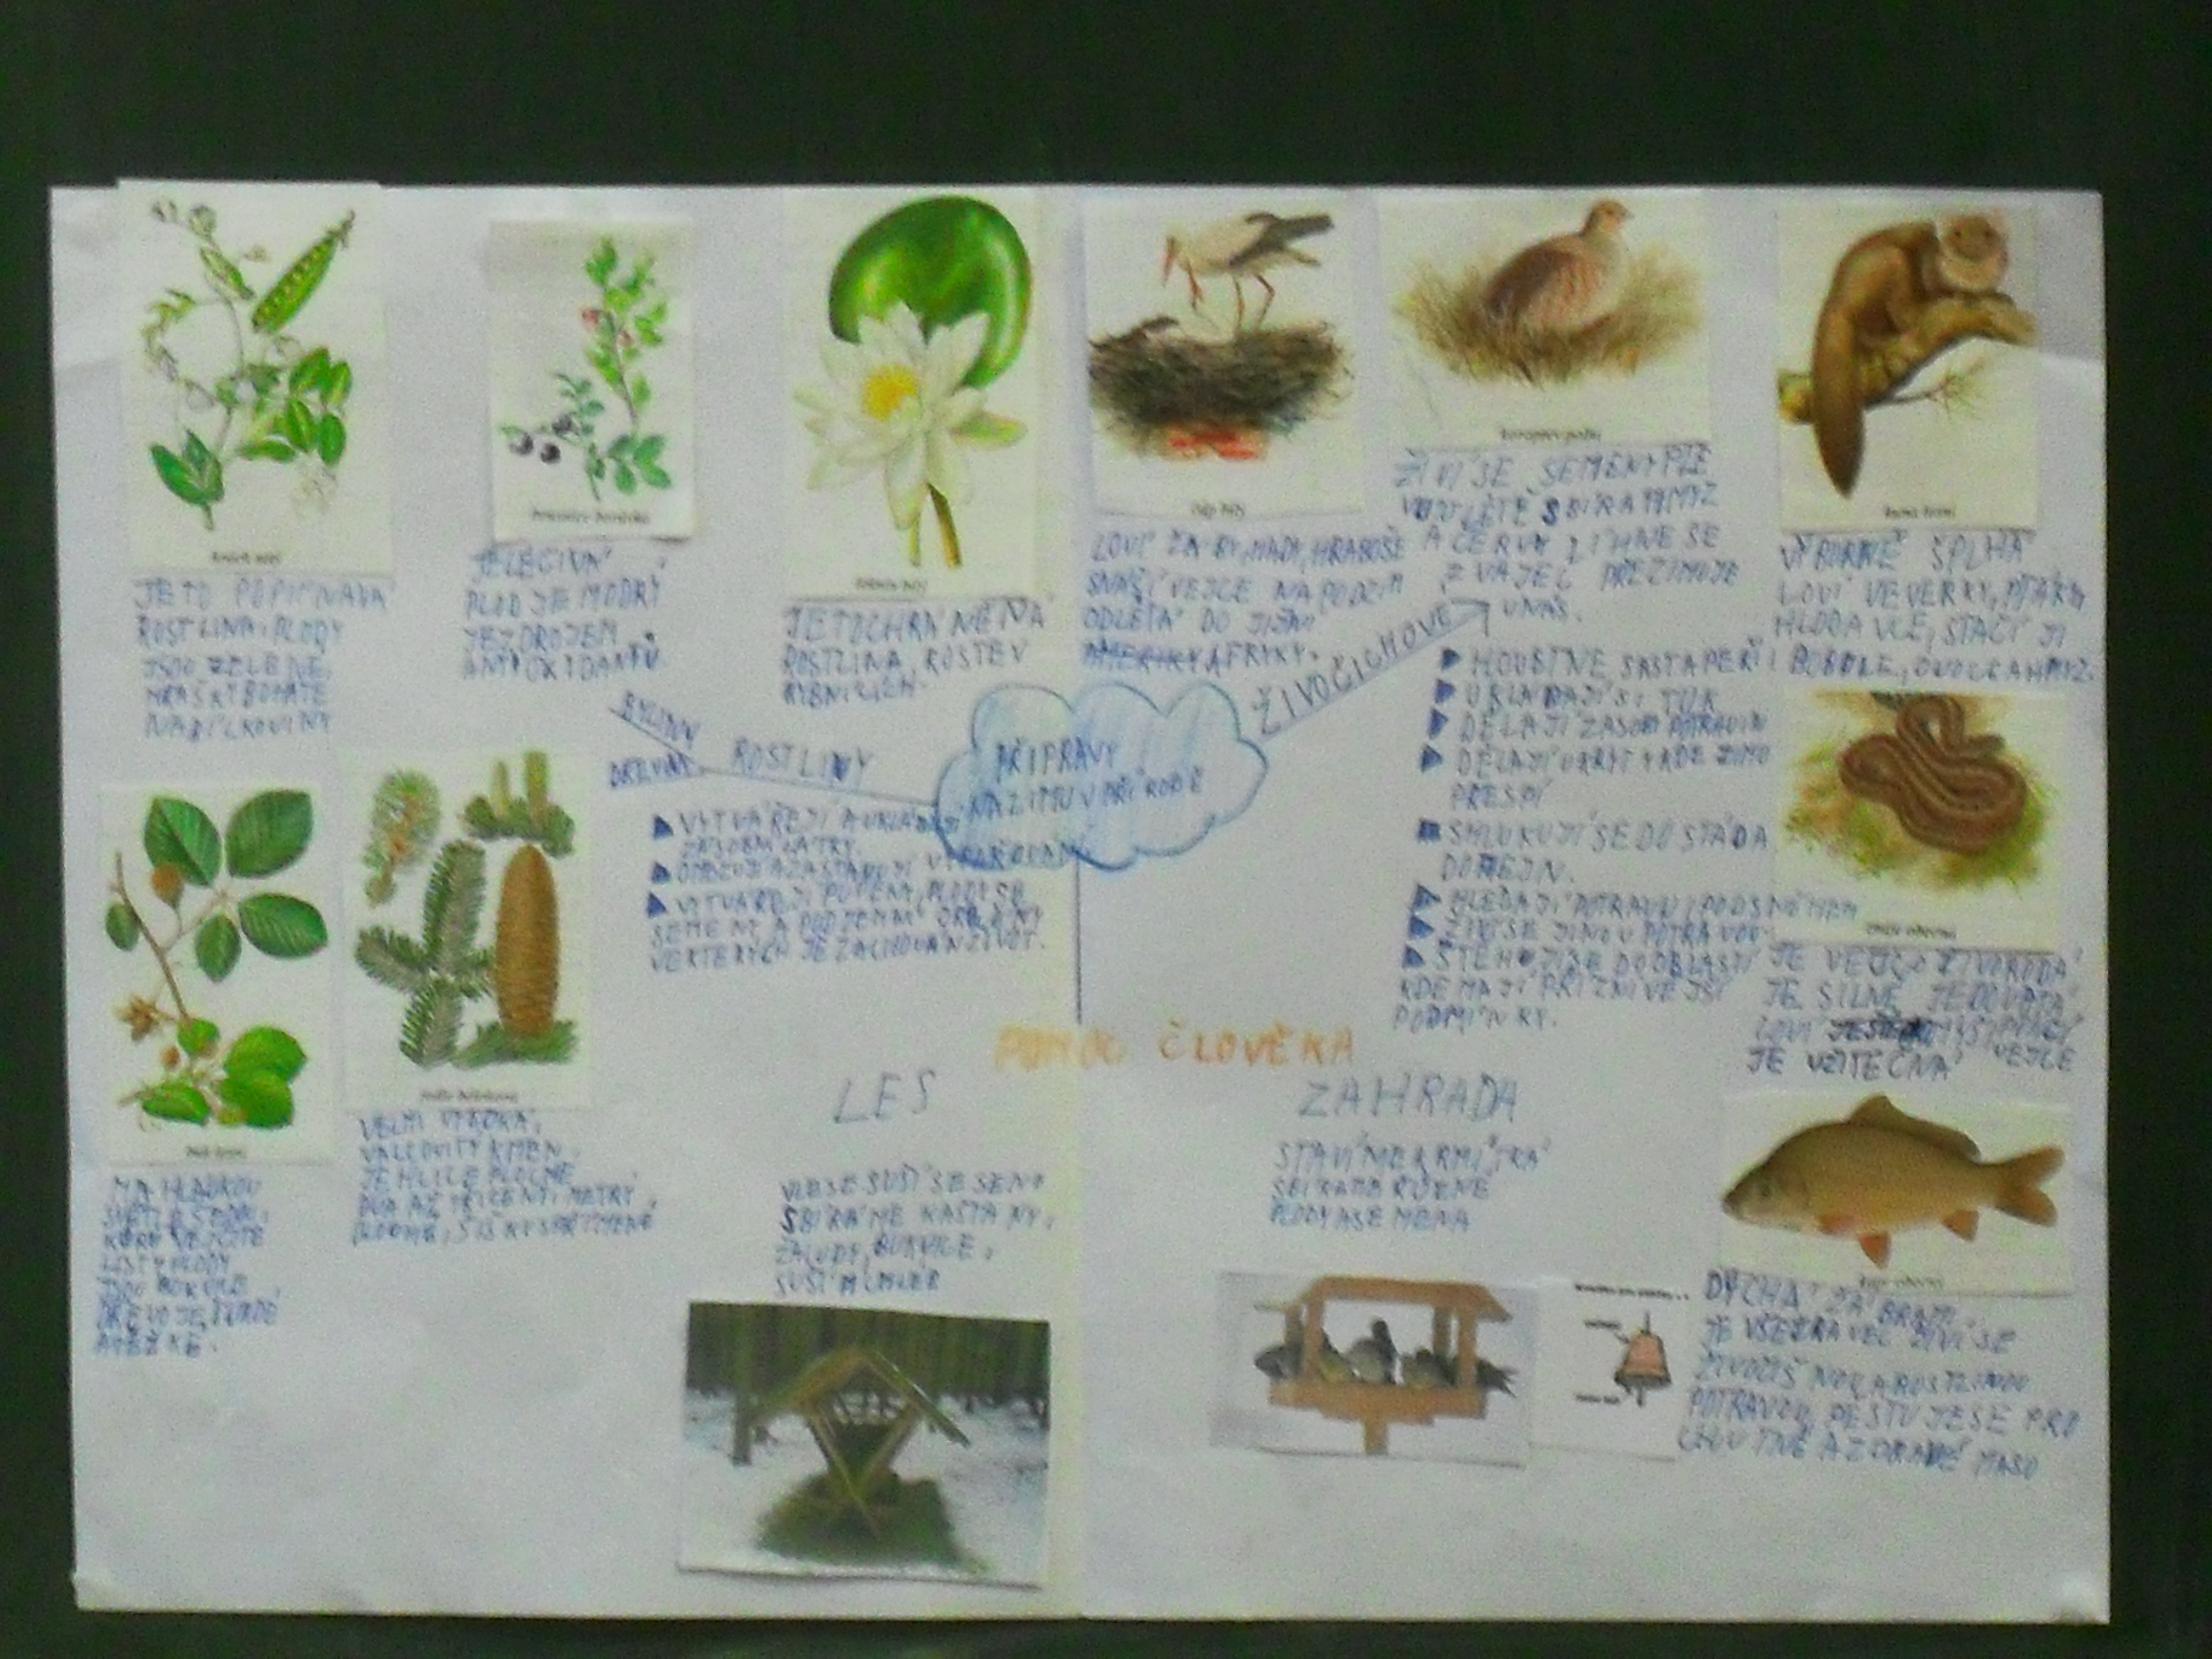 JE TO POPÍNAVÁ
ROSTLINA, PLODY
JSOU ZELENÉ
HRÁŠKY BOHATÉ
NA BÍLKOVINY
JE LÉČIVÁ
PLOD JE MODRÝ
JE ZDROJEM
ANTIOXIDANTŮ.
JE TO CHRÁNĚNÁ
ROSTLINA, ROSTE V
RYBNÍCÍCH.
čáp bílý
LOVÍ ŽÁBY, HADY, HRABOŠE
SNÁŠÍ VEJCE NA PODZIM
ODLÉTÁ DO JIŽNÍ
AMERIKY AFRIKY.
koroptev polní
ŽIVÍ SE SEMENY
V LÉTĚ SBÍRÁ HMYZ
A ČERVY LÍHNE SE
Z VAJEC PŘEZIMUJE
U NÁS.
kuna lesní
VÝBORNĚ ŠPLHÁ
LOVÍ VEVERKY, PTÁKY,
HLODAVCE, STAČÍ JÍ
BOBULE, OVOCE A HMYZ.
BYLINY
DŘEVINY
ROSTLINY
PŘÍPRAVY
NA ZIMU V PŘÍRODĚ
ŽIVOČICHOVÉ
VYTVÁŘEJÍ A UKLÁDAJÍ
ZÁSOBNÍ LÁTKY.
OMEZUJÍ A ZASTAVUJÍ
VYTVÁŘEJÍ PUPENY, PLODY SE
SEMENY A PODZEMNÍ ORGÁNY
VE KTERÝCH JE ZACHOVÁN ŽIVOT.
HOUSTNE SRST A PEŘÍ
UKLÁDAJÍ SI TUK
DĚLAJÍ ZÁSOBY POTRAVIN
DĚLAJÍ ÚKRYT KDE ZIMU
PŘESPÍ
SHLUKUJÍ SE DO STÁDA
DO HEJN.
HLEDAJÍ POTRAVU I POD SNĚHEM
ŽIVÍ SE JINOU POTRAVOU
STĚHUJÍ SE DO OBLASTÍ
KDE MAJÍ PŘÍZNIVĚJŠÍ
PODMÍNKY.
zmije obecná
JE VEJCOŽIVORODÁ
JE SILNĚ JEDOVATÁ
LOVÍ
JE UŽITEČNÁ VEJCE
buk lesní
MÁ HLADKOU
SVĚTLE ŠEDOU
KŮRU VEJČITÉ
LISTY PLODY
JSOU
DŘEVO JE TVRDÉ
A TĚŽKÉ.
jedle bělokorá
VELMI VYSOKÁ,
VÁLCOVITÝ KMEN,
JEHLICE PLOCHÉ
DVA AŽ TŘI CENTIMETRY
POMOC ČLOVĚKA
LES
V LESE SUŠÍ SE SENO
SBÍRÁME KAŠTANY,
ŽALUDY, BUKVICE,
SUŠÍM CHLÉB
ZAHRADA
STAVÍME KRMÍTKA
SBÍRÁME RŮZNÉ
PLODY A SEMENA
kapr obecný
DÝCHÁ ŽÁBRAMI
JE VŠEŽRAVEC ŽIVÍ SE
ŽIVOČIŠNOU A ROSTLINOU
POTRAVOU, PĚSTUJE SE PRO
CHUTNÉ A ZDRAVÉ MASO